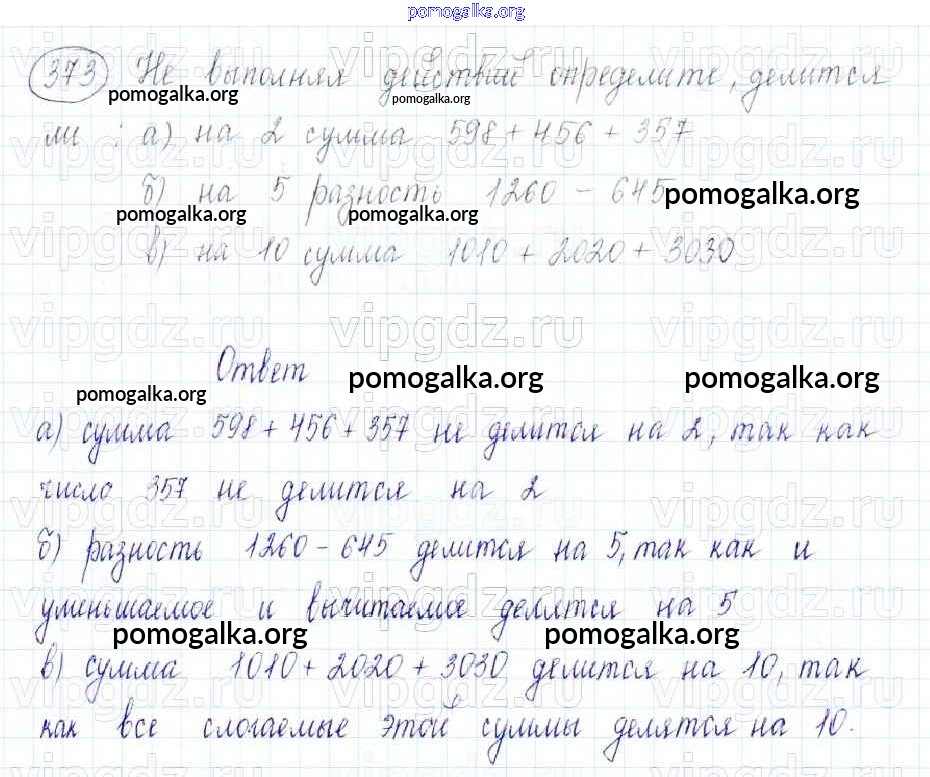 pomogalka.org
373 Не выполняя действий определите, делится
ли : а) на 2 сумма 598 + 456 + 357
б) на 5 разность 1260 - 645
в) на 10 сумма 1010 + 2020 + 3030
Ответ
а) сумма 598 + 456 + 357 не делится на 2, так как
число 357 не делится на 2
б) разность 1260 - 645 делится на 5, так как и
уменьшаемое и вычитаемое делятся на 5
в) сумма 1010 + 2020 + 3030 делится на 10, так
как все слогаемые этой суммы делятся на 10.
pomogalka.org
pomogalka.org
pomogalka.org
pomogalka.org
pomogalka.org
pomogalka.org
pomogalka.org
pomogalka.org
pomogalka.org
pomogalka.org
vipgdz.ru